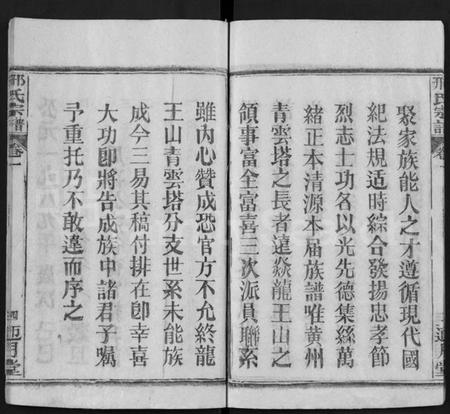 邢氏宗譜
卷一
聚家族能人之才遵循現代國
紀法規适時綜合發揚忠孝節
烈志士功名以光先德集縧萬
緒正本清源本届族譜唯黄州
青雲塔之長者遠燚龍王山之
領事富全富喜三次派員聯系
雖内心赞成恐官方不允終龍
王山青雲塔分支世系未能族
成今三易其稿付排在即幸喜
大功即將告成族中諸君子囑
予重托乃不敢違而序之
邢氏宗譜
卷一
四